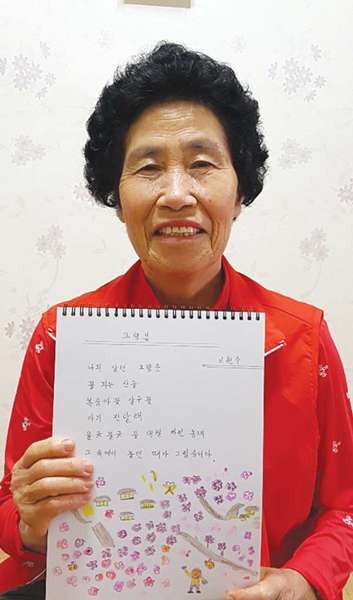 고향봄
이원수
나의 살던 고향은
꽃 피는 산골
복숭아 꽃 살구 꽃
아기 진달래
울긋 불긋 꽃 대궐 차린 동네
그 속에서 놀던 때가 그립습니다.